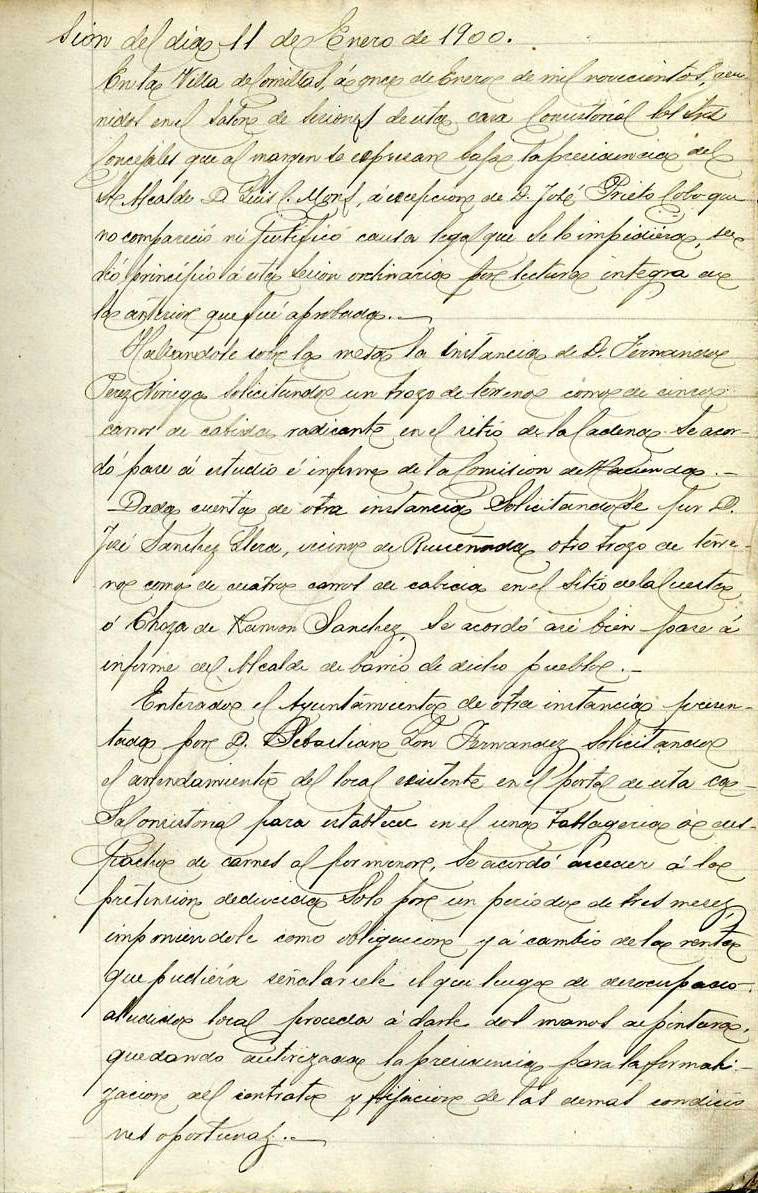 sión del dia 11 de Enero de 1900.
En la Villa de Comillas, á once de Enero de mil novecientos, reu
nidos en el Salon de sesiones de esta casa Consistorial los Sres
Concejales que al margen se expresan bajo la presidencia del
Sr Alcalde D. Luis C. Mons, á excepcion de D. José Prieto Cobo que
no compareció ni justificó causa legal que se lo impidiera, se
dió principio á esta sesion ordinaria por lectura integra de
la anterior que fué aprobada.
Hallandose sobre la mesa la instancia de D. Fernando
Perez Noriega solicitando un trozo de terreno como de cinco
carros de cabida radicante en el sitio de la Cadena. Se acor-
dó pase á estudio é informe de la Comision de Hacienda.
Dada cuenta de otra instancia Solicitandose por D.
José Sanchez Llera, vecino de Ruiseñada otro trozo de terre-
no como de cuatro carros de cabida en el Sitio de la Cuesta
ó Choza de Ramon Sanchez Se acordó asi bien pase á
informe del Alcalde de barrio de dicho pueblo.
Enterado el Ayuntamiento de otra instancia presen-
tada por D. Sebastian Lon Fernandez Solicitando
el arrendamiento del local existente en el portal de esta ca-
Sa Consistorial para establecer en el una tablageria ó des-
pacho de carnes al por menor, Se acordó acceder á la
pretension deducida Solo por un periodo de tres meses,
imponiendole como obligacion y á cambio de la renta
que pudiera señalarsele el que luego de desocupado
aludido local proceda á darle dos manos de pintura,
quedando autorizada la presidencia para la formali-
zacion del contrato y fijacion de las demas condicio
nes oportunas.